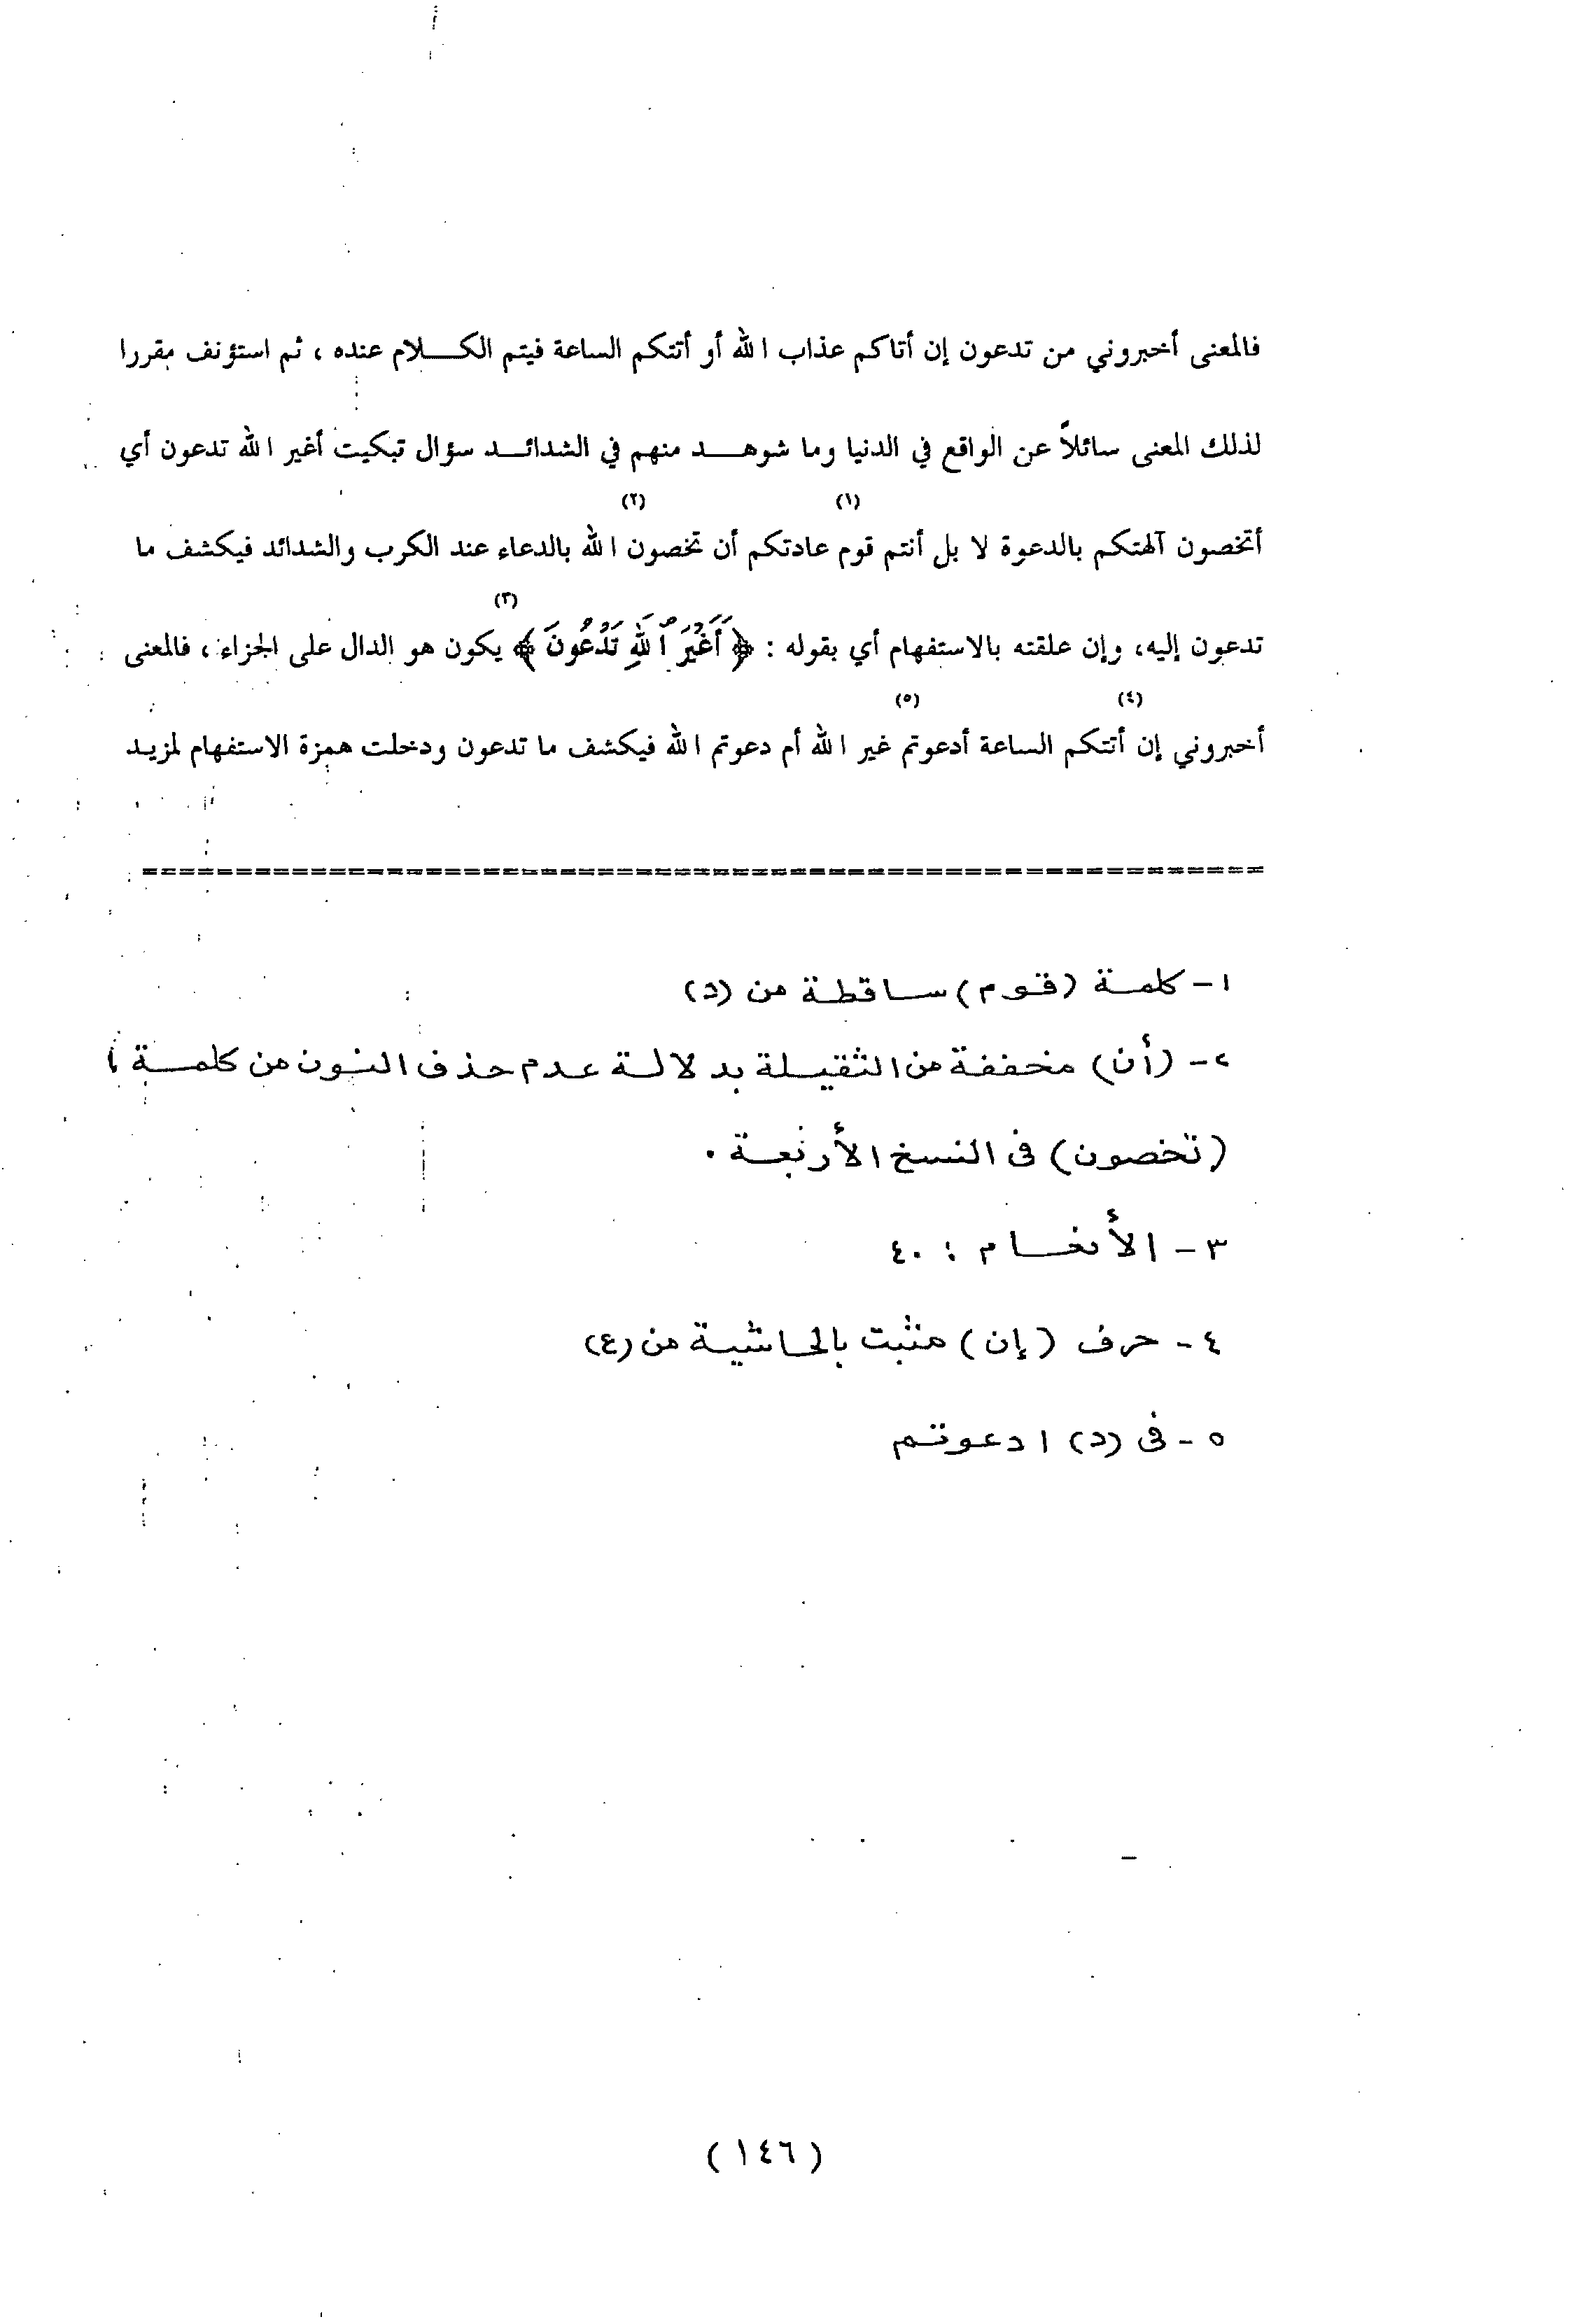 فالمعنى أخبروني من تدعون إن أتاكم عذاب الله أو أتتكم الساعة فيتم الكـــلام عنده ، ثم استؤنف مقررا
لذلك المعنى سائلاً عن الواقع في الدنيا وما شوهـــد منهم في الشدائـــد سؤال تبكيت أغير الله تدعون أي
(١) (٢)
أتخصون آلهتكم بالدعوة لا بل أنتم قوم عادتكم أن تخصون الله بالدعاء عند الكرب والشدائد فيكشف ما
(٣)
تدعون إليه، وإن علقته بالاستفهام أي بقوله : ﴿ أَغَيْرَ ٱللَّهِ تَدْعُونَ ﴾ يكون هو الدال على الجزاء ، فالمعنى
(٤) (٥)
أخبروني إن أتتكم الساعة أدعوتم غير الله أم دعوتم الله فيكشف ما تدعون ودخلت همزة الاستفهام لمزيد
١ - كلمة (قوم) ساقطة من (د)
٢ - (أن) مخففة من الثقيلة بدلالة عدم حذف النون من كلمة
(تخصون) فى النسخ الأربعة .
٣ - الأنعام : ٤٠
٤ - حرف (إن) مثبت بالحاشية من (ع)
٥ - فى (د) ادعوتم
( ١٤٦ )